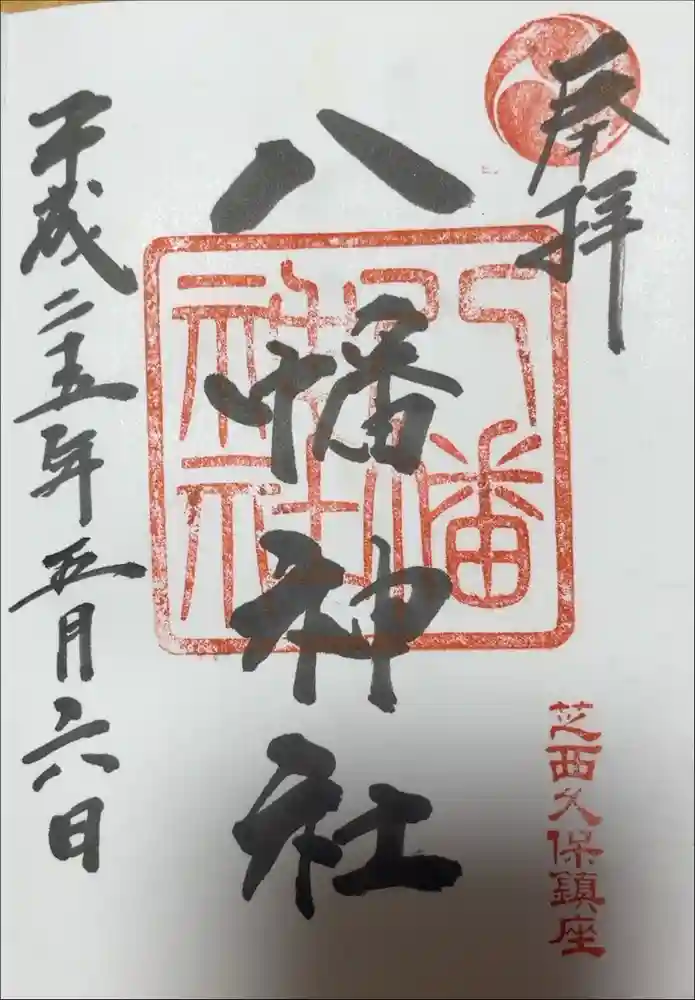 奉拝
芝西久保鎮座
八幡神社
八幡神社
平成二十五年五月六日